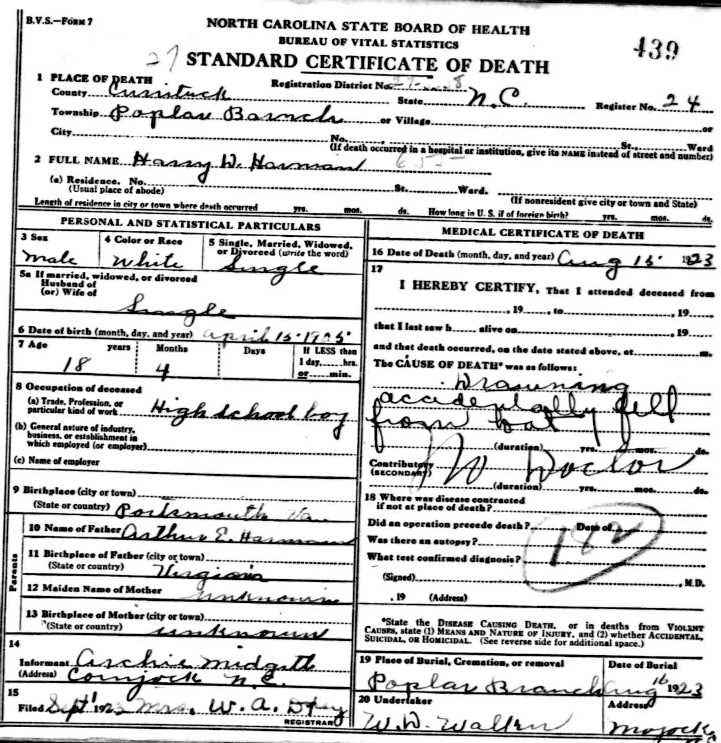 B.V.S.—FORM 7
NORTH CAROLINA STATE BOARD OF HEALTH
BUREAU OF VITAL STATISTICS
439
27
STANDARD CERTIFICATE OF DEATH
1 PLACE OF DEATH Registration District No.
County Currituck State N.C. Register No. 24
Township Poplar Barnch or Village or
City No. St., Ward
(If death occurred in a hospital or institution, give its NAME instead of street and number)
2 FULL NAME Harry W. Harman
(a) Residence. No. St. Ward.
(Usual place of abode) (If nonresident give city or town and State)
Length of residence in city or town where death occurred yrs. mos. ds. How long in U. S. if of foreign birth? yrs. mos. ds.
PERSONAL AND STATISTICAL PARTICULARS
3 Sex 4 Color or Race 5 Single, Married, Widowed,
or Divorced (write the word)
male White Single
5a If married, widowed, or divorced
Husband of
(or) Wife of
Single
6 Date of birth (month, day, and year) April 15 1905
7 Age years Months Days If LESS than
1 day, hrs.
or min.
18 4
8 Occupation of deceased
(a) Trade, Profession, or
particular kind of work High school boy
(b) General nature of industry,
business, or establishment in
which employed (or employer)
(c) Name of employer
9 Birthplace (city or town)
(State or country) Portsmouth Va
Parents
10 Name of Father Arthur E. Harman
11 Birthplace of Father (city or town)
(State or country) Virginia
12 Maiden Name of Mother unknown
13 Birthplace of Mother (city or town)
(State or country) unknown
14
Informant Archie Midgett
(Address) Coinjock N.C.
15
Filed Sept 1 1923 Mrs. W. A.
REGISTRAR
MEDICAL CERTIFICATE OF DEATH
16 Date of Death (month, day, and year) Aug 15 1923
17
I HEREBY CERTIFY, That I attended deceased from
, 19 , to , 19
that I last saw h alive on , 19
and that death occurred, on the date stated above, at m.
The CAUSE OF DEATH* was as follows:
Drowning
accidentally fell
from boat
(duration) yrs. mos. ds.
Contributory No Doctor
(SECONDARY)
(duration) yrs. mos. ds.
18 Where was disease contracted
if not at place of death?
Did an operation precede death? Date of
Was there an autopsy? 182
What test confirmed diagnosis?
(Signed) , M.D.
, 19 (Address)
*State the DISEASE CAUSING DEATH, or in deaths from VIOLENT
CAUSES, state (1) MEANS AND NATURE OF INJURY, and (2) whether ACCIDENTAL,
SUICIDAL, OR HOMICIDAL. (See reverse side for additional space.)
19 Place of Burial, Cremation, or removal Date of Burial
Poplar Branch Aug 16 1923
20 Undertaker Address
W. D. Walker Mojock N.C.